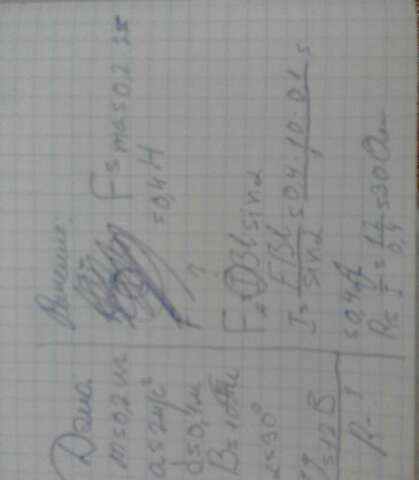 Дано:
m=0,2 кг
a=2м/с²
d=0,4м
α=90°
U=12 В
R-?
Решение:
F=ma=0,2·2=
=0,4Н
F=IBl sinα
I=FBl/sinα=0,4·10·0,1=
=0,4A
R=U/I=12/0,4=30 Ом